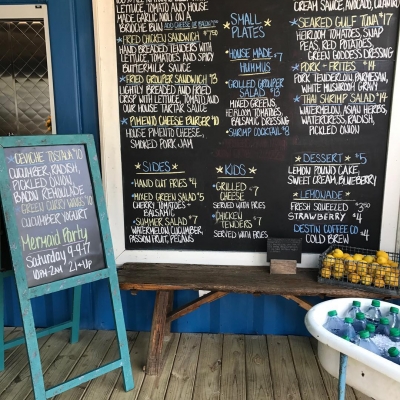 TOMATO AND HOUSE
MADE GARLIC MAYO ON A
BRIOCHE BUN ADD CHEESE OR BACON
*FRIED CHICKEN SANDWICH $7.50
HAND BREADED TENDERS WITH
LETTUCE, TOMATOES AND SPICY
BUTTERMILK SAUCE
*FRIED GROUPER SANDWICH $13
LIGHTLY BREADED AND FRIED
CRISP WITH LETTUCE, TOMATO AND
OUR HOUSE TARTAR SAUCE
*PIMENTO CHEESE BURGER $10
HOUSE PIMENTO CHEESE,
SMOKED PORK JAM
SMALL
PLATES
*HOUSE MADE $7
HUMMUS
*GRILLED GROUPER
SALAD $13
MIXED GREENS,
HEIRLOOM TOMATOES,
BALSAMIC DRESSING
*SHRIMP COCKTAIL $8
CREAM SAUCE, AVOCADO,
*SEARED GULF TUNA $17
HEIRLOOM TOMATOES, SNAP
PEAS, RED POTATOES,
GREEN GODDESS DRESSING
*PORK + FRITES $14
PORK TENDERLOIN, PARMESAN,
WHITE MUSHROOM GRAVY
*THAI SHRIMP SALAD $14
WATERMELON, ASIAN HERBS,
WATERCRESS, RADISH,
PICKLED ONION
SIDES
*HAND CUT FRIES $4
*MIXED GREEN SALAD $5
CHERRY TOMATOES +
BALSAMIC
*SUMMER SALAD $7
WATERMELON, CUCUMBER,
PASSION FRUIT, PECANS
KIDS
*GRILLED $7
CHEESE
SERVED WITH FRIES
*CHICKEN
TENDERS $7
SERVED WITH FRIES
*DESSERT $5
LEMON POUND CAKE,
SWEET CREAM, BLUEBERRY
*LEMONADE
FRESH SQUEEZED $3.50
STRAWBERRY $4
DESTIN COFFEE CO
COLD BREW $4
*CEVICHE TOSTADA $10
CUCUMBER, RADISH,
PICKLED ONION,
BACON REMOULADE
GREEN CURRY WINGS $10
CUCUMBER, YOGURT
Mermaid Party
Saturday 9.4.17
10AM-2AM 21+UP